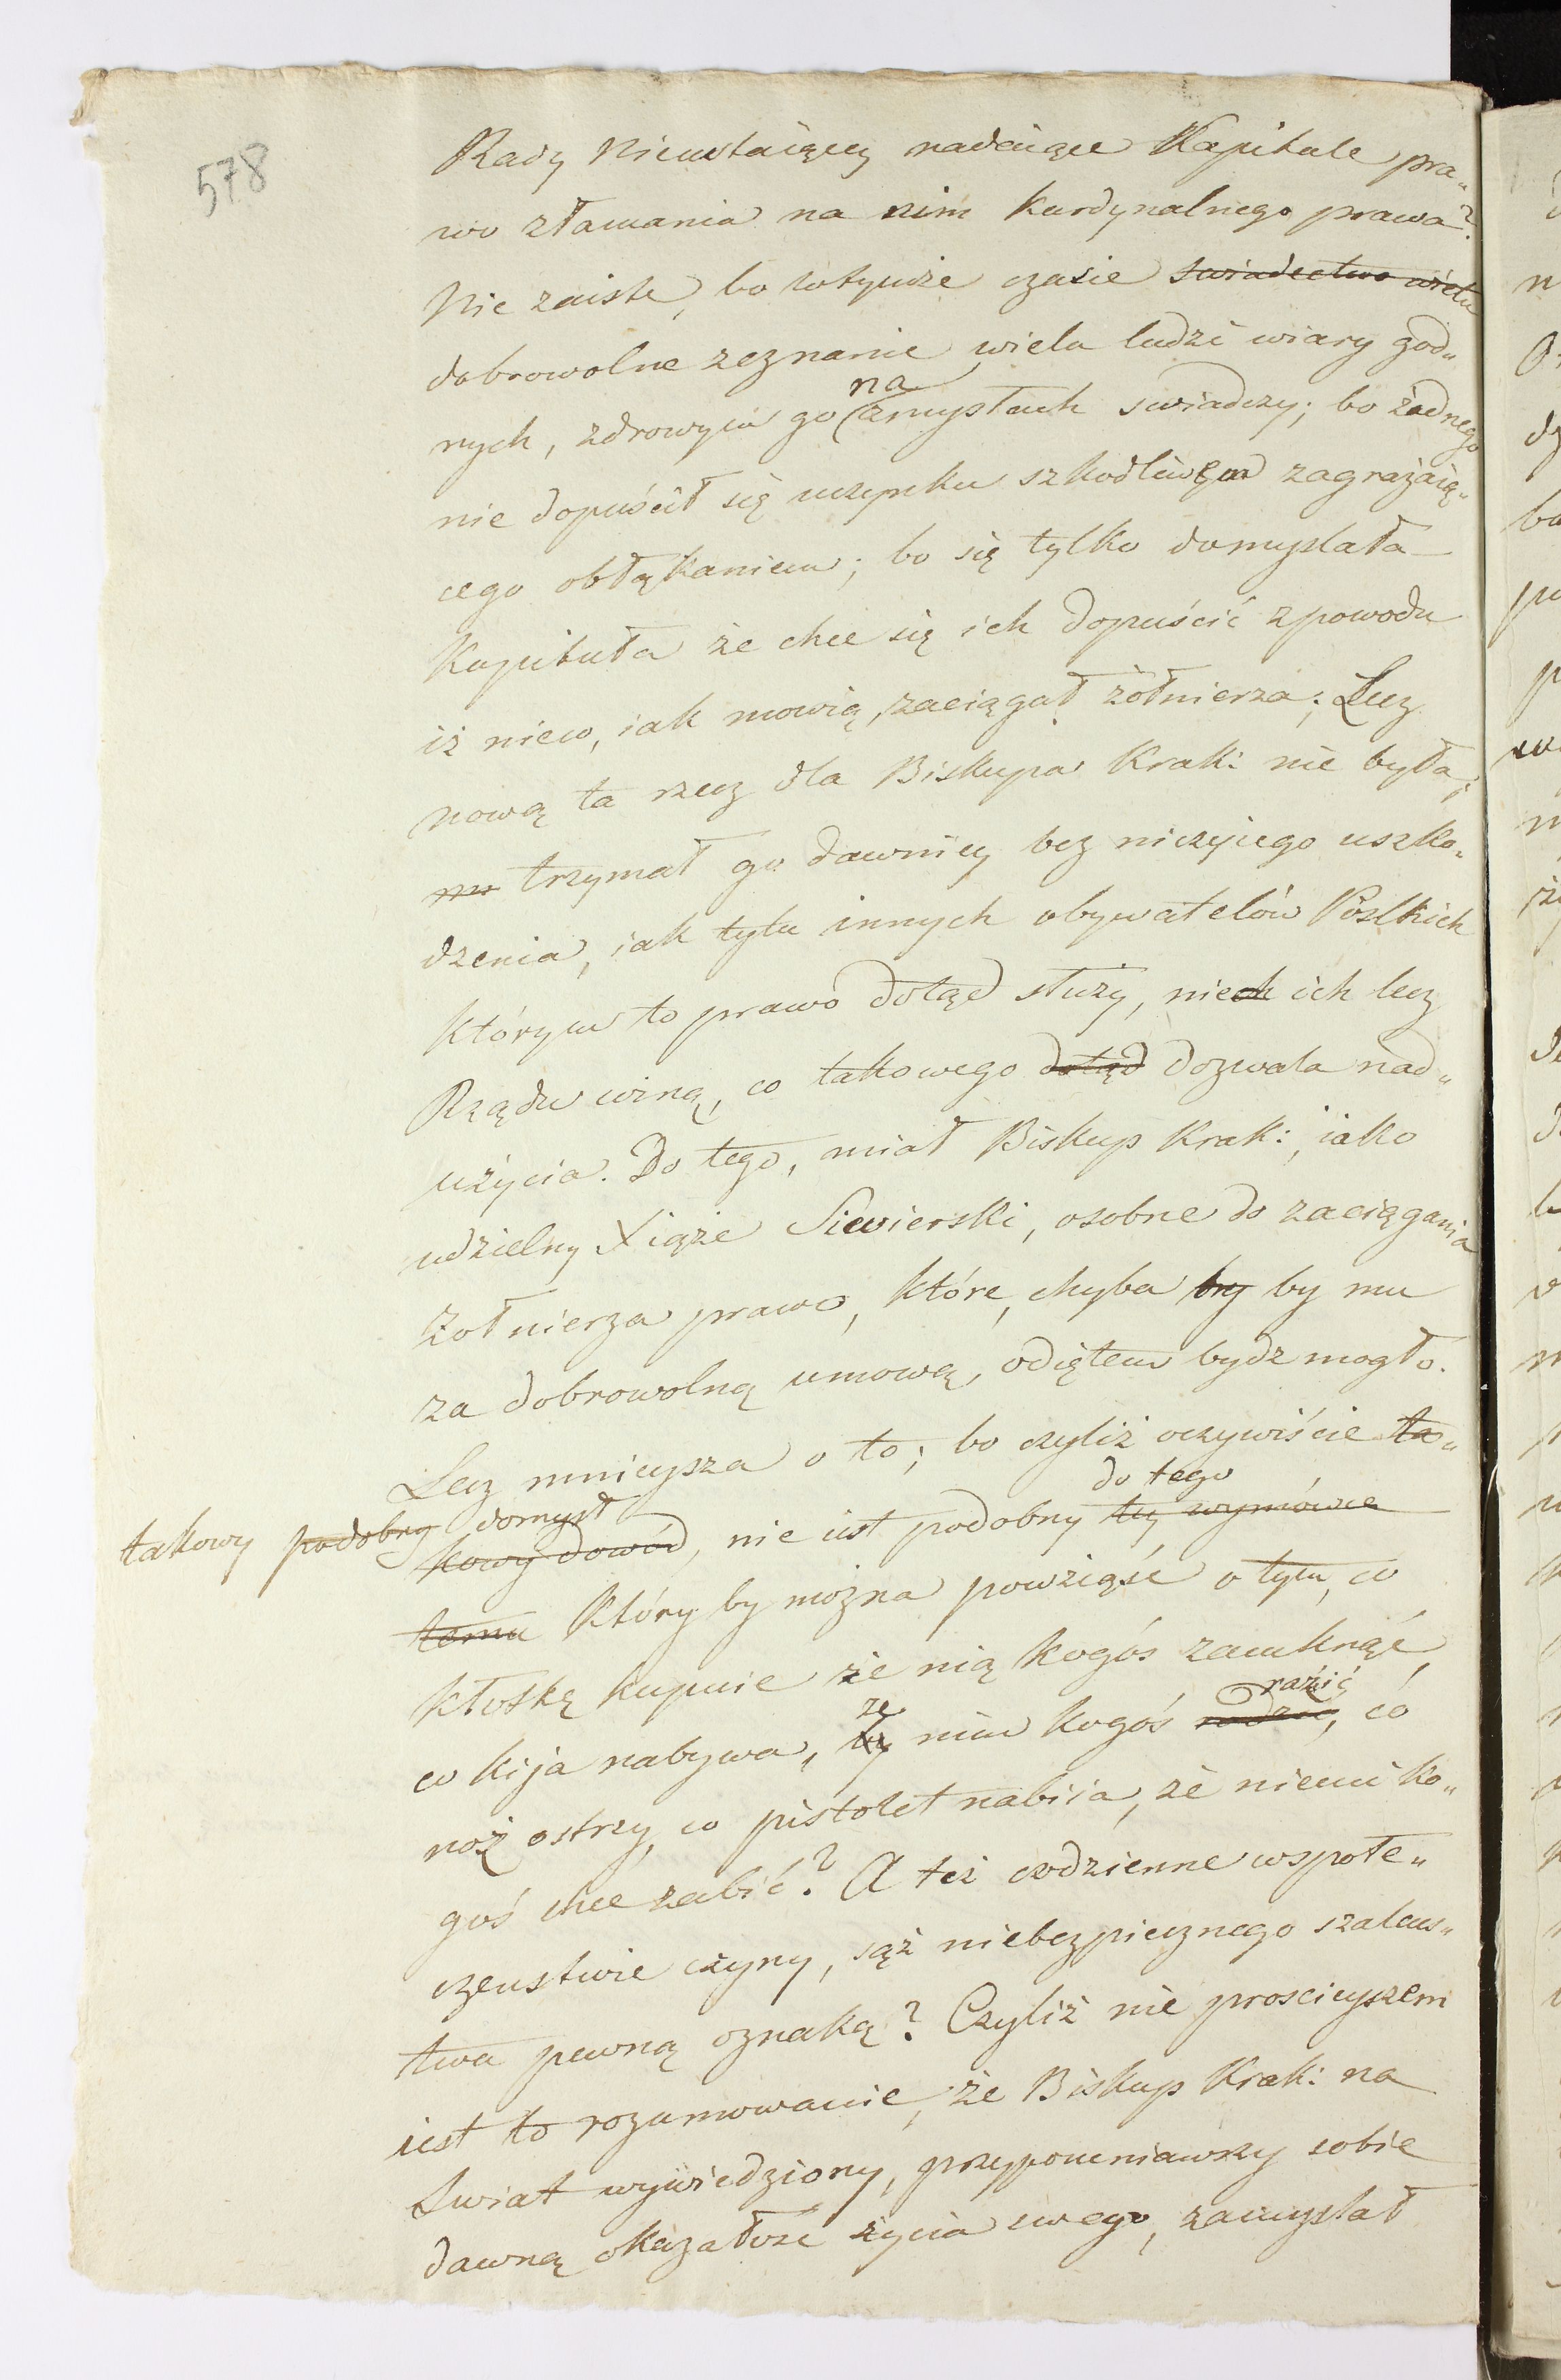 578
Rady Nieustaiącey nadaiące Kapitule pra„
wo złamania na nim kardynalnego prawa?
Nie zaiste, bo wtymże czasie swiadectwo wielu
dobrowolne zeznanie wielu ludzi wiary god„
na
nych, zdrowym go zmysłach swiadczy; bo żadnego
nie dopuścił się uczynku szkodliwem zagrażaią„
cego obłąkaniem; bo się tylko domyslała
Kapituła że chce się ich dopuścić zpowodu
iż niew, iak mowią, zaciągał żołnierza; Lecz
nową ta rzecz dla Biskupa Krak: nie była;
trzymał go dawniey bez niczyiego uszko„
dzenia, iak tylu innych obywatelów Polskich
którym to prawo dotąd służy, niech ich lecz
Rządu winą, co takowego dotąd dozwala nad„
użycia. Do tego, miał Biskup Krak:, iako
udzielny Xiąże Siewierski, osobne do zaciągania
żołnierza prawo, które, chyba by by mu
za dobrowolną umową, odiętem bydz mogło.
Lecz mnieysza o to; bo czyliż oczywiście ta„
do tego
takowy podobny domysł
kowy dowód, nie iest podobny tey wymówce
temu który by można powziąść o tym, co
kłotkę kupuie że nią kogoś zamknąć,
że raźić
co kija nabywa, by nim kogoś, có
noż ostrzy, co pistolet nabiia, że niemi ko„
goś chce zabić? A też codzienne wspołe„
czenstwie czyny, sąż niebezpiecznego szalens„
twa pewną oznaką? Czyliż nie prościeyszem
iest to rozumowanie, że Biskup Krak: na
Swiat wywiedziony, przypomniawszy sobie
dawną okazałość życia swego, zamyslał